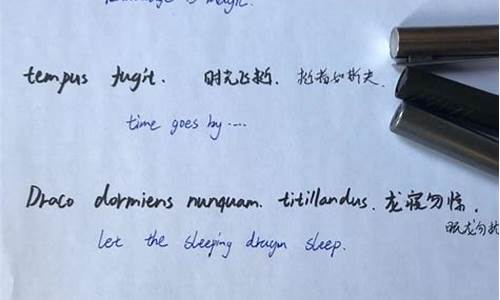 language is magic.
tempus fugit. 时光飞逝. 逝者如斯夫.
time goes by ....
Draco dormiens nunquam. titillandus. 龙寝勿惊.
眠龙勿扰
let the sleeping dragon sleep.